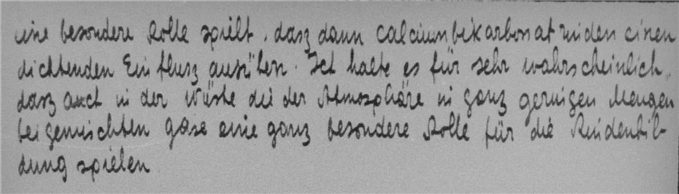 eine besondere Rolle spielt, dasz dann Calciumbikarbonatrinden einen
dichtenden Einflusz ausüben. Ich halte es für sehr wahrscheinlich,
dasz auch in der Wüste die der Atmosphäre in ganz geringen Mengen
beigemischten Gase eine ganz besondere Rolle für die Rindenbil-
dung spielen